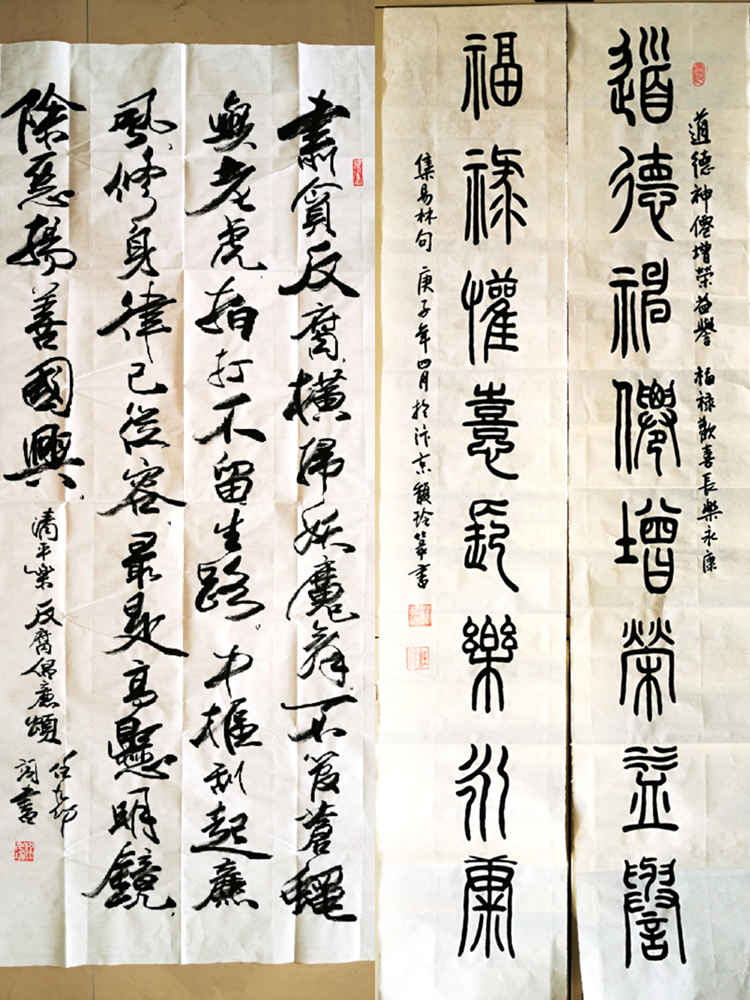 肅貪反腐橫掃妖魔舞不管蒼蠅
與老虎拍打不留生路中樞刮起廉
風修身律己從容最是高懸明鏡
除惡揚善國興
清平樂反腐倡廉頌
詞書
道德神僊增榮益譽 福祿歡喜長樂永康
道德神僊增榮益譽
福祿懽憙長樂永康
集易林句 庚子年四月於汴京 篆書